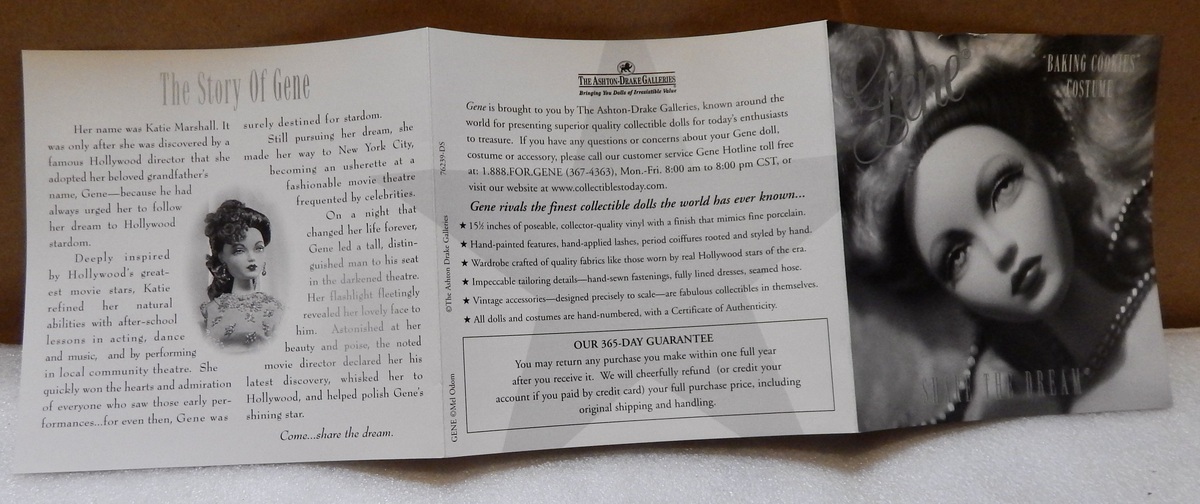 The Story Of Gene
Her name was Katie Marshall. It
was only after she was discovered by a
famous Hollywood director that she
adopted her beloved grandfather's
name, Gene—because he had
always urged her to follow
her dream to Hollywood
stardom.
Deeply inspired
by Hollywood's great-
est movie stars, Katie
refined her natural
abilities with after-school
lessons in acting, dance
and music, and by performing
in local community theatre. She
quickly won the hearts and admiration
of everyone who saw those early per-
formances...for even then, Gene was
surely destined for stardom.
Still pursuing her dream, she
made her way to New York City,
becoming an usherette at a
fashionable movie theatre
frequented by celebrities.
On a night that
changed her life forever,
Gene led a tall, distin-
guished man to his seat
in the darkened theatre.
Her flashlight fleetingly
revealed her lovely face to
him. Astonished at her
beauty and poise, the noted
movie director declared her his
latest discovery, whisked her to
Hollywood, and helped polish Gene's
shining star.
Come...share the dream.
76239-DS
©The Ashton Drake Galleries
GENE ©Mel Odom
THE ASHTON-DRAKE GALLERIES
Bringing You Dolls of Irresistible Value
Gene is brought to you by The Ashton-Drake Galleries, known around the
world for presenting superior quality collectible dolls for today's enthusiasts
to treasure. If you have any questions or concerns about your Gene doll,
costume or accessory, please call our customer service Gene Hotline toll free
at: 1.888.FOR.GENE (367-4363), Mon.-Fri. 8:00 am to 8:00 pm CST, or
visit our website at www.collectiblestoday.com.
Gene rivals the finest collectible dolls the world has ever known...
★ 15½ inches of poseable, collector-quality vinyl with a finish that mimics fine porcelain.
★ Hand-painted features, hand-applied lashes, period coiffures rooted and styled by hand.
★ Wardrobe crafted of quality fabrics like those worn by real Hollywood stars of the era.
★ Impeccable tailoring details—hand-sewn fastenings, fully lined dresses, seamed hose.
★ Vintage accessories—designed precisely to scale—are fabulous collectibles in themselves.
★ All dolls and costumes are hand-numbered, with a Certificate of Authenticity.
OUR 365-DAY GUARANTEE
You may return any purchase you make within one full year
after you receive it. We will cheerfully refund (or credit your
account if you paid by credit card) your full purchase price, including
original shipping and handling.
Gene
"BAKING COOKIES"
COSTUME
SHARE THE DREAM